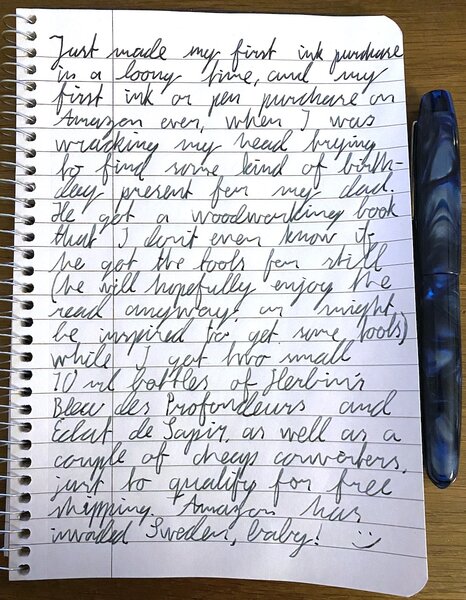 Just made my first ink purchase
in a loong time, and my
first ink or pen purchase on
Amazon ever, when I was
wracking my head trying
to find some kind of birth-
day present for my dad.
He got a woodworking book
that I don't even know if
he got the tools for still
(he will hopefully enjoy the
read anyway, or might
be inspired to get some tools)
while I get two small
10 ml bottles of Herbin's
Bleu des Profondeurs and
Eclat de Sapir, as well as a
couple of cheap converters,
just to qualify for free
shipping. Amazon has
invaded Sweden, baby! :)